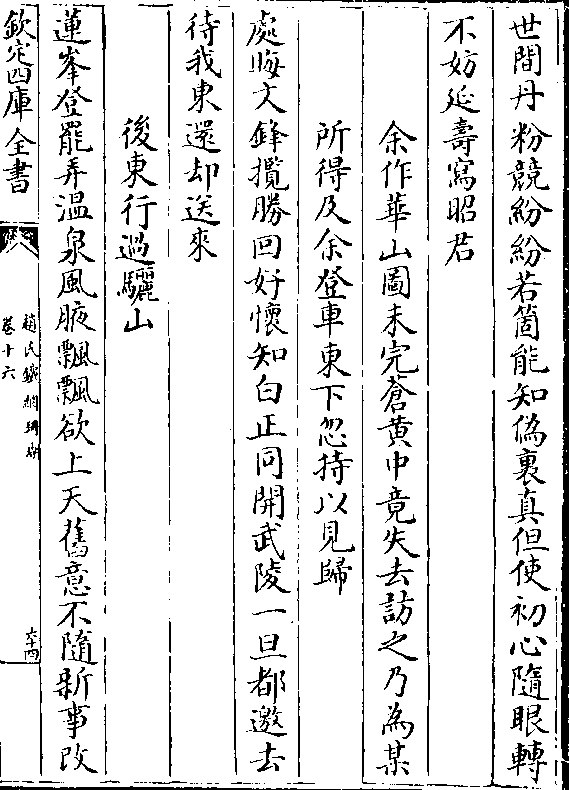 世間丹粉競紛紛若箇能知偽裏真但使初心隨眼轉
不妨延壽寫昭君
余作華山圖未完蒼黄中竟失去訪之乃為某
所得及余登車東下忽持以見歸
處晦文鋒攬勝回好懷知白正同開武陵一旦都邀去
待我東還却送來
後東行過驪山
蓮峯登罷弄温泉風腋飄飄欲上天舊意不隨新事改
欽定四庫全書
趙氏鐵網珊瑚
卷十六
六十四